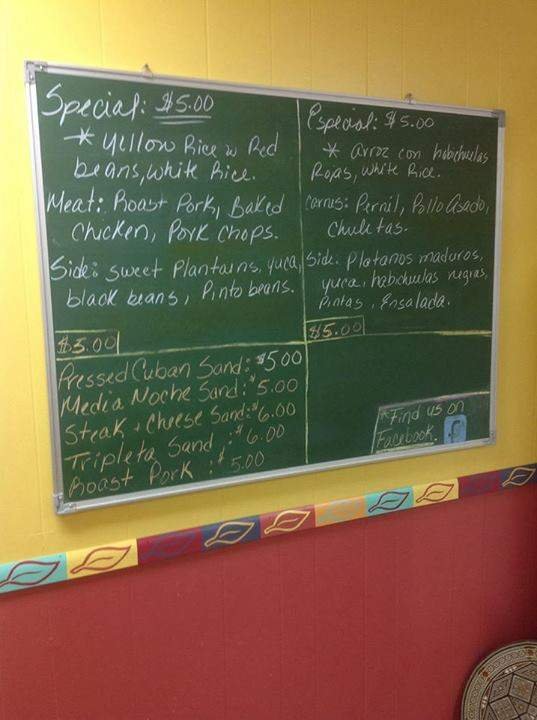 Special: $5.00
* Yellow Rice w Red
beans, white Rice.
Meat: Roast Pork, Baked
Chicken, Pork Chops.
Side: sweet Plantains, yuca,
black beans, Pinto beans.
$5.00
Especial: $5.00
* arroz con habichuelas
Rojas, White Rice.
carnes: Pernil, Pollo Asado,
Chuletas.
Side: Platanos maduros,
yuca, habichuelas negras,
Pintas, Ensalada.
$5.00
Pressed Cuban Sand: $5.00
Media Noche Sand: $5.00
Steak & Cheese Sand: $6.00
Tripleta Sand: $6.00
Roast Pork: $5.00
*Find us on
Facebook. f